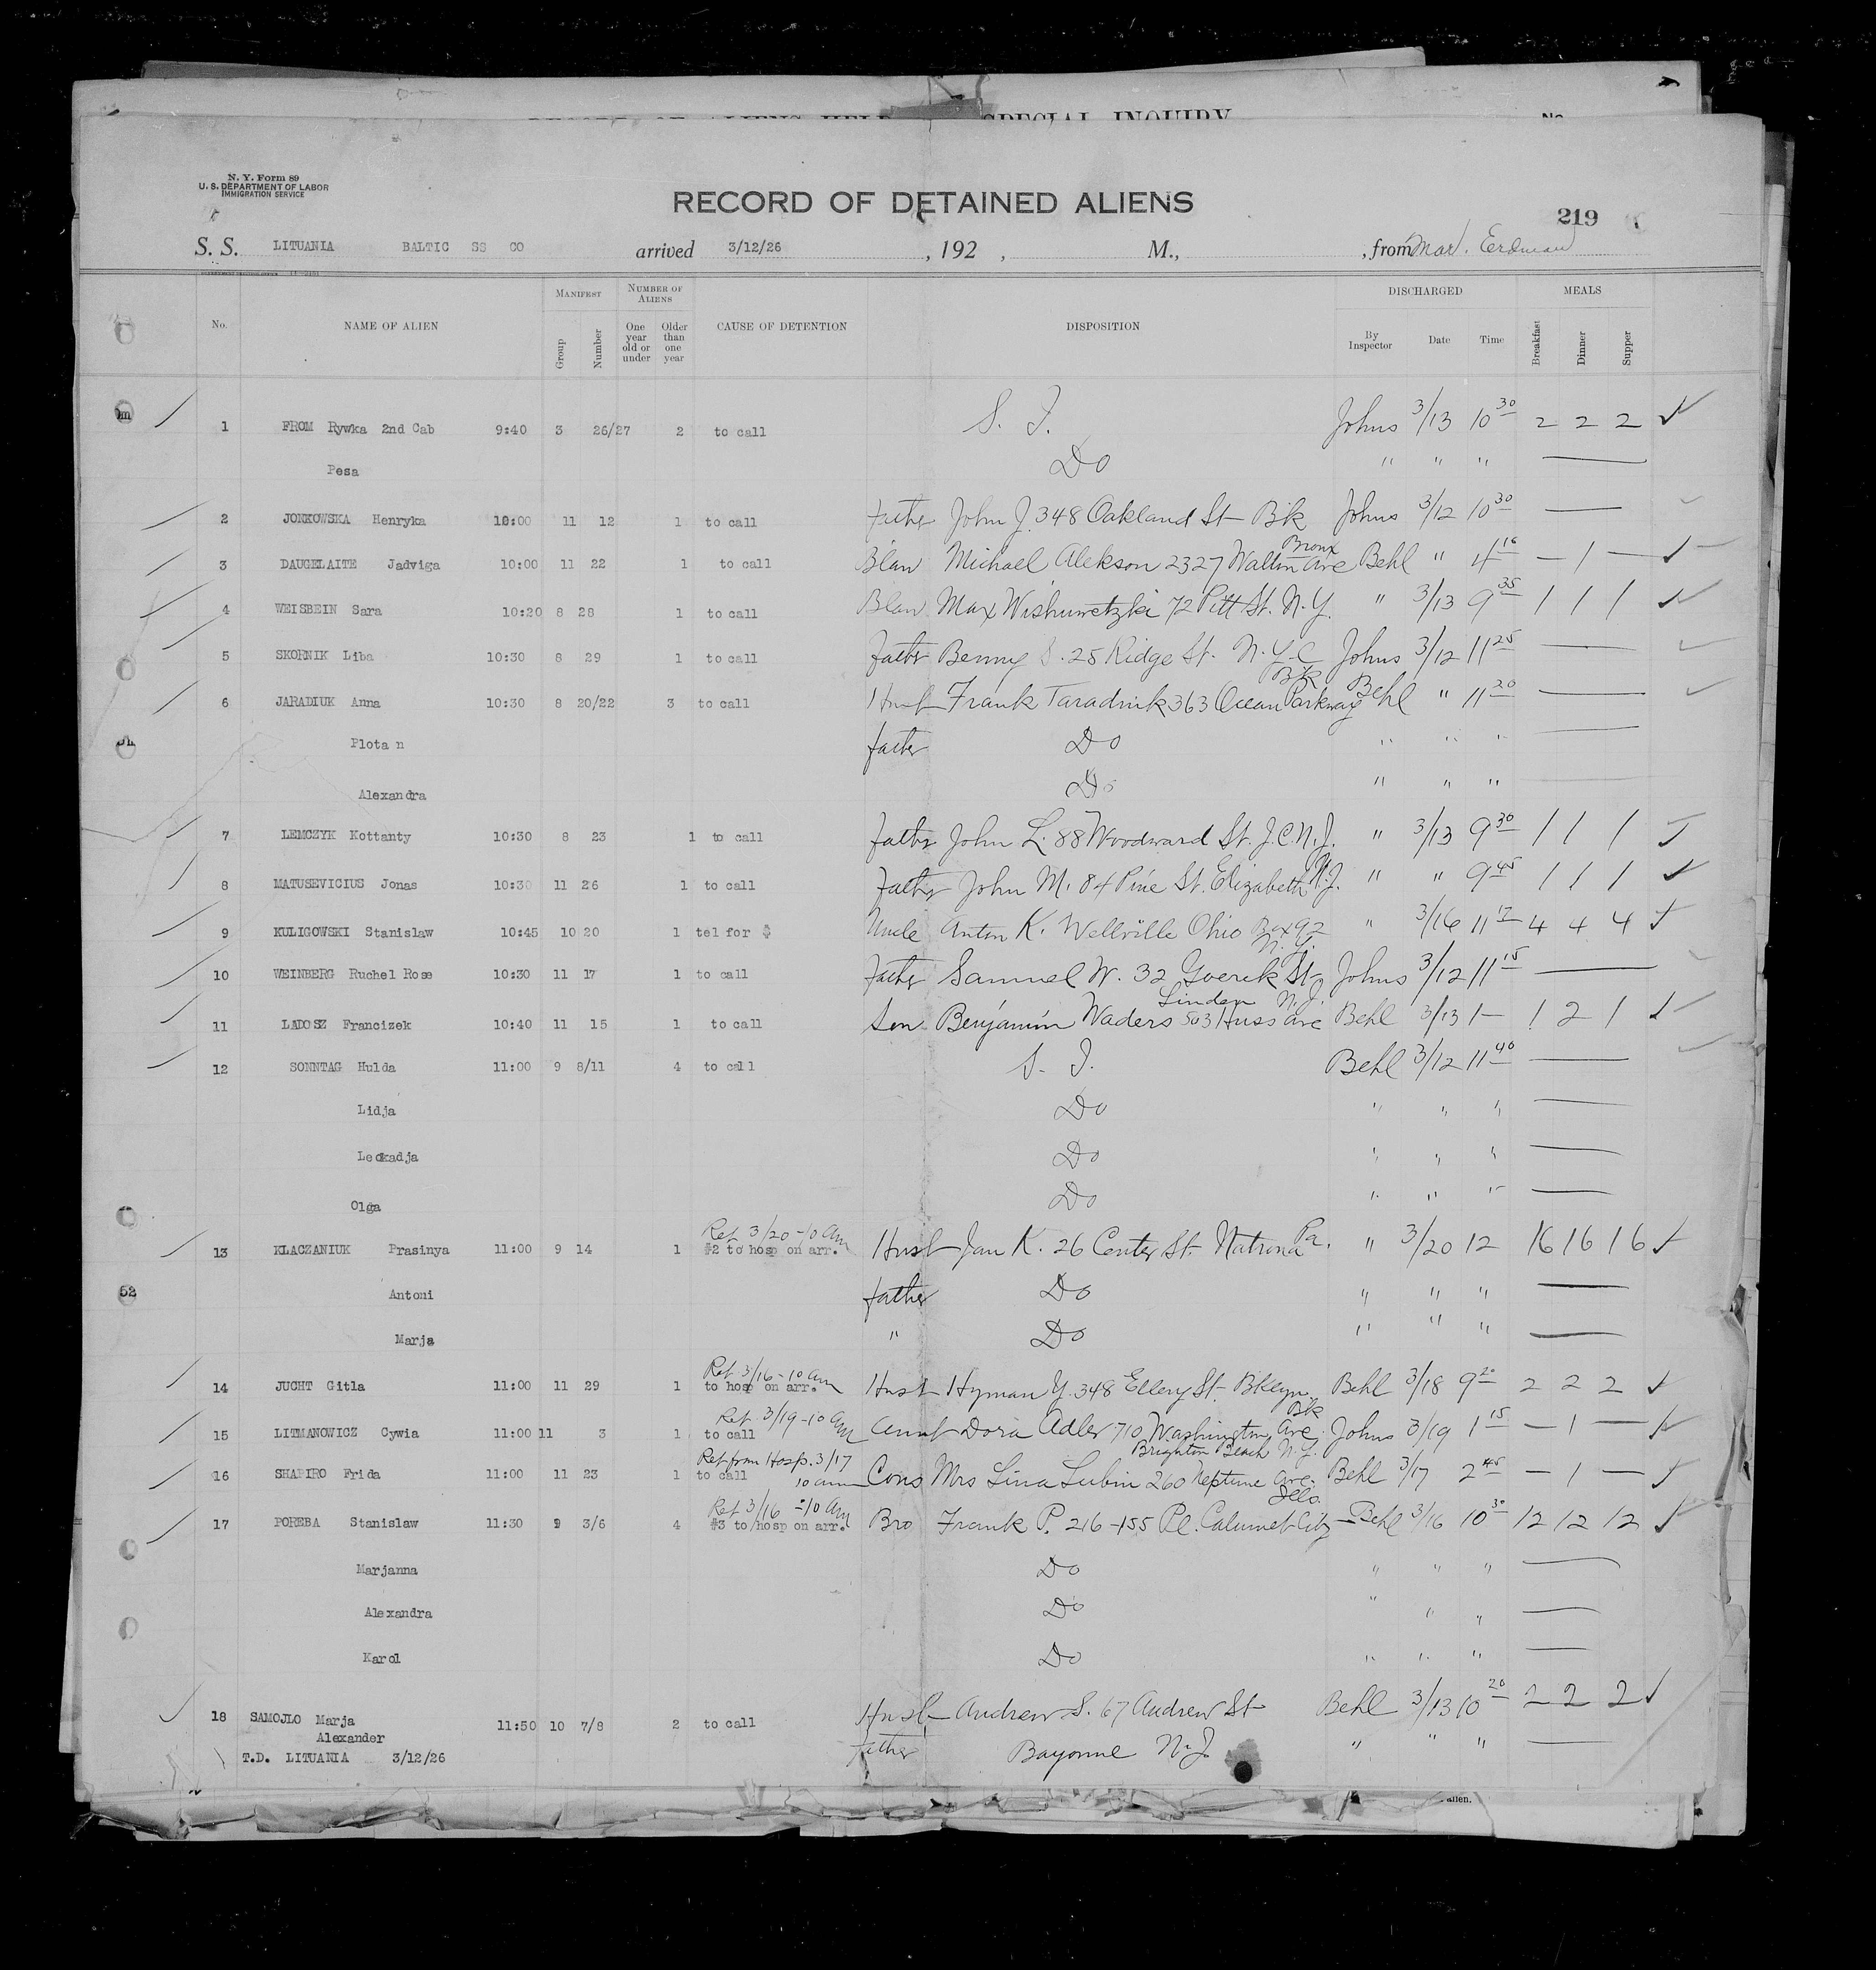 SPECIAL INQUIRY
No
N. Y. Form 89
U. S. DEPARTMENT OF LABOR
IMMIGRATION SERVICE
RECORD OF DETAINED ALIENS
219
S. S. LITUANIA BALTIC SS CO arrived 3/12/26 , 192 , M., , from Mar. Erdman
No. NAME OF ALIEN MANIFEST Group Number NUMBER OF ALIENS One year old or under Older than one year CAUSE OF DETENTION DISPOSITION DISCHARGED By Inspector Date Time MEALS Breakfast Dinner Supper
1 FROM Rywka 2nd Cab 9:40 3 26/27 2 to call S. I. Johns 3/13 10 30 2 2 2
Pesa Do " " "
2 JONKOWSKA Henryka 10:00 11 12 1 to call Father John J. 348 Oakland St Bk Johns 3/12 10 30 —
3 DAUGELAITE Jadviga 10:00 11 22 1 to call Blaw Michael Alekson 2327 Walton Ave Bronx Behl " 4 10 — 1 —
4 WEISBEIN Sara 10:20 8 28 1 to call Blaw Max Wishunetzki 72 Pitt St. N.Y. " 3/13 9 35 1 1 1
5 SKORNIK Liba 10:30 8 29 1 to call Father Benny S. 25 Ridge St. N.Y.C Johns 3/12 11 25 —
6 JARADIUK Anna 10:30 8 20/22 3 to call Husb Frank Taradiuk 363 Ocean Parkway Bk Behl " 11 20 —
Plota n father Do " " " —
Alexandra Do " " " —
7 LEMCZYK Kottanty 10:30 8 23 1 to call Father John L. 88 Woodward St. J.C.N.J. " 3/13 9 30 1 1 1
8 MATUSEVICIUS Jonas 10:30 11 26 1 to call Father John M. 84 Pine St. Elizabeth N.J. " " 9 45 1 1 1
9 KULIGOWSKI Stanislaw 10:45 10 20 1 tel for $ Uncle Anton K. Wellville Ohio Box 92 " 3/16 11 4 4 4
10 WEINBERG Ruchel Rose 10:30 11 17 1 to call Father Samuel W. 32 Goerck St N.Y. Johns 3/12 11 15 —
11 LADOSZ Francizek 10:40 11 15 1 to call Son Benjamin Waders 503 Huss Ave Linden N.J. Behl 3/13 1— 1 2 1
12 SONNTAG Hulda 11:00 9 8/11 4 to call S. I. Behl 3/12 11 40 —
Lidja Do " " " —
Leokadja Do " " " —
Olga Do " " " —
13 KLACZANIUK Prasinya 11:00 9 14 1 Ret 3/20-10 am #2 to hosp on arr. Husb Jan K. 26 Center St Natrona Pa. " 3/20 12 16 16 16
Antoni father Do " " " —
Marja " Do " " " —
14 JUCHT Gitla 11:00 11 29 1 Ret 3/16-10 am to hosp on arr. Husb Hyman Y. 348 Ellery St. Bklyn. Behl 3/18 9 20 2 2 2
15 LITMANOWICZ Cywia 11:00 11 3 1 Ret 3/19-10 am to call Aunt Dora Adler 710 Washington Ave Bk Johns 3/19 1 15 — 1 —
16 SHAPIRO Frida 11:00 11 23 1 Ret from Hosp. 3/17 10 am to call Cous Mrs Lina Lubin 260 Neptune Ave. Brighton Beach N.Y. Behl 3/17 2 45 — 1 —
17 POREBA Stanislaw 11:30 9 3/6 4 Ret 3/16 -10 am #3 to hosp on arr. Bro Frank P. 216-155 Pl. Calumet City Ills. Behl 3/16 10 30 12 12 12
Marjanna Do " " " —
Alexandra Do " " " —
Karol Do " " " —
18 SAMOJLO Marja 11:50 10 7/8 2 to call Husb Andrew S. 67 Andrew St Behl 3/13 10 20 2 2 2
Alexander father Bayonne N.J. " " " —
T.D. LITUANIA 3/12/26
52
alien.